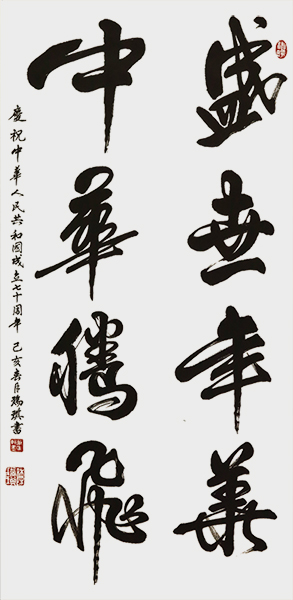 盛世年華
中華騰飛
慶祝中華人民共和國成立七十周年 己亥春月瑞琪書